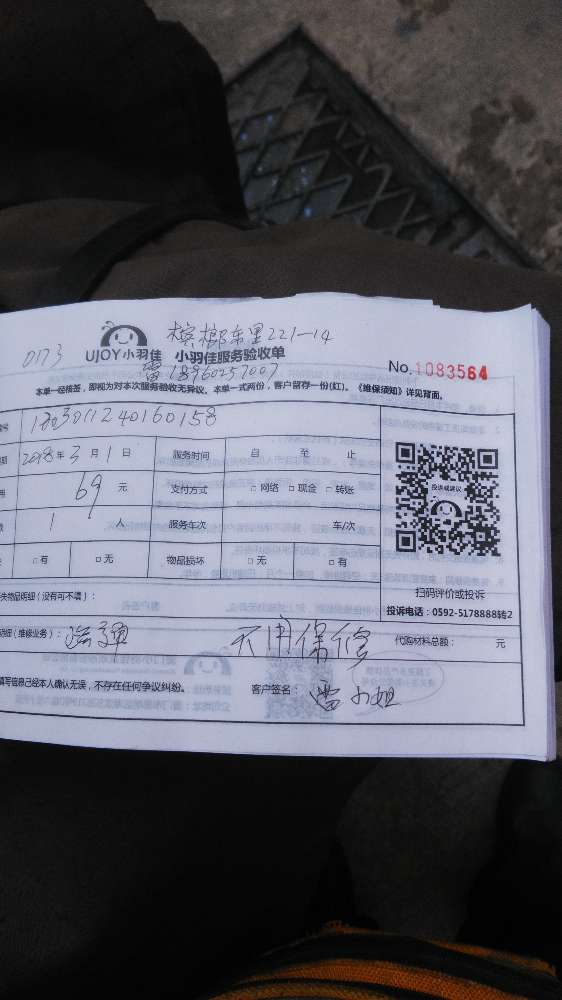 槟榔东里221-14
0173 UJOY小羽佳 小羽佳服务验收单 No.1083564
雷 18960257007
本单一经核签，即视为对本次服务验收无异议。本单一式两份，客户留存一份(红)。《维保须知》详见背面。
2018年3月1日 服务时间 自 至 止
69元 支付方式 □ 网络 □ 现金 □ 转账
1 人 服务车次 车/次
□ 有 □ 无 物品损坏 □ 无 □ 有
投诉或建议
扫码评价或投诉
失物品明细（没有可不填）：
投诉电话：0592-5178888转2
明细（维修业务）： 不用保修 代购材料总额： 元
填写信息已经本人确认无误，不存在任何争议纠纷。 客户签名： 雷小姐